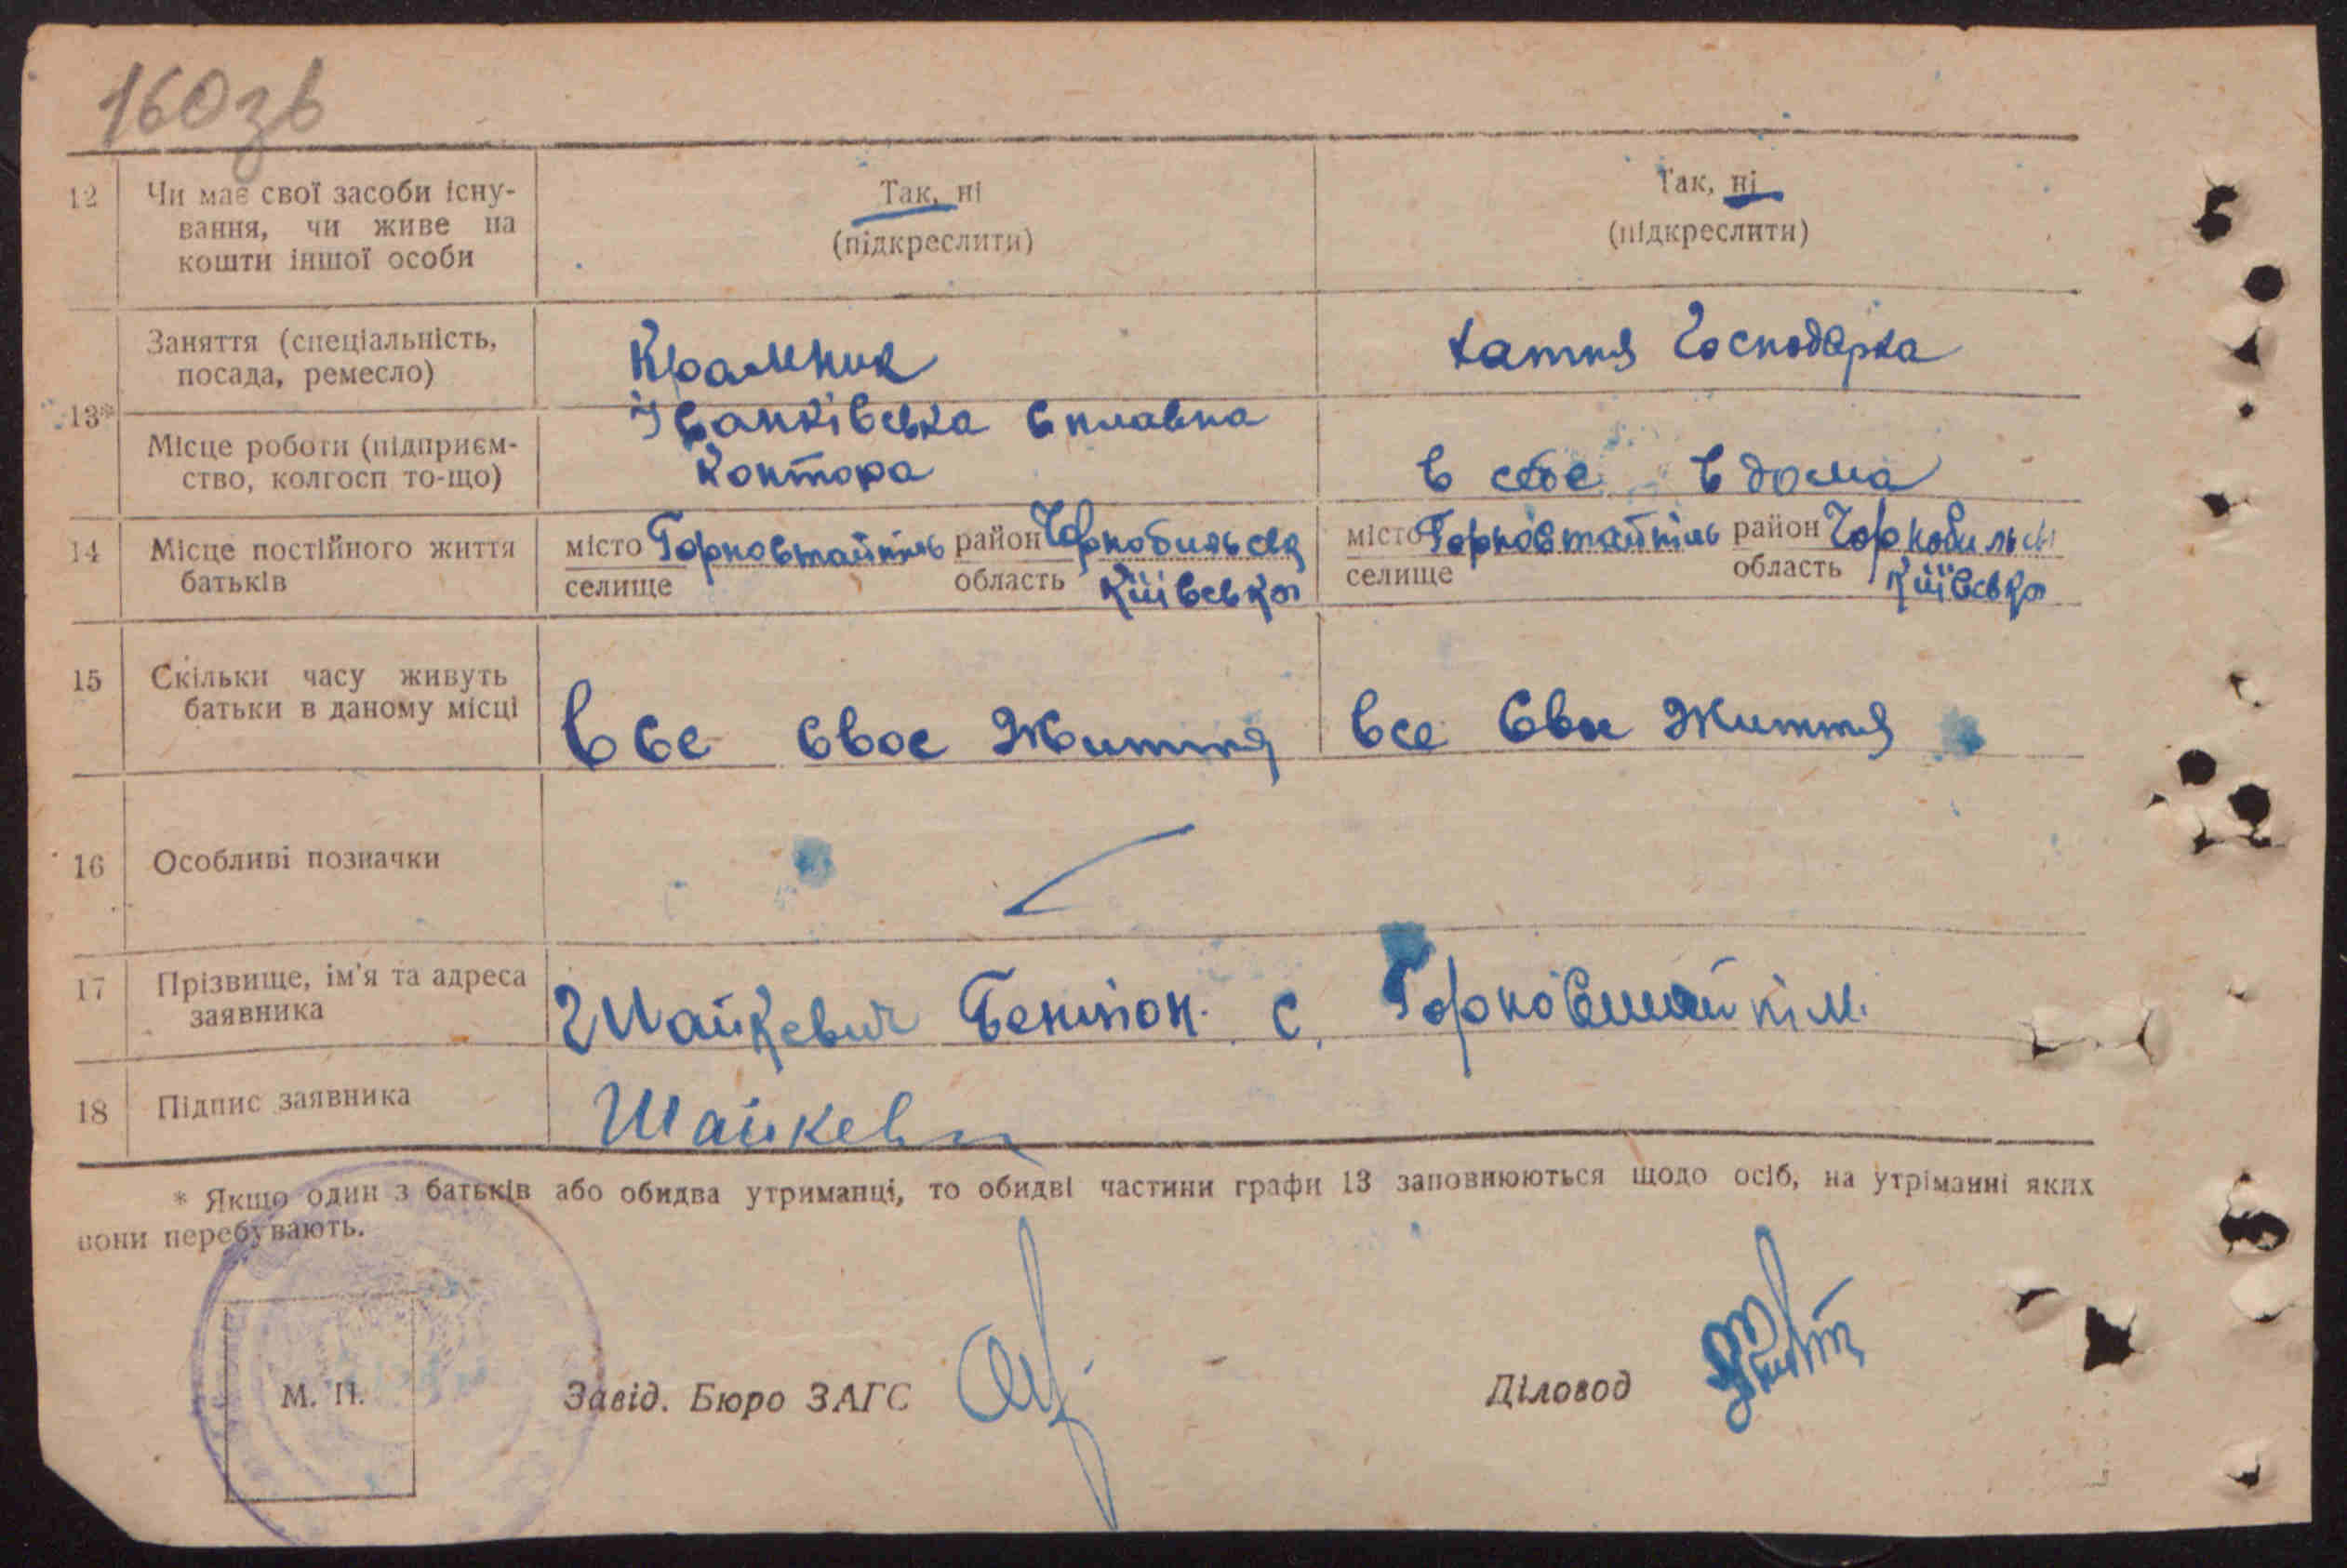 160зв
12 Чи має свої засоби існу- Так, ні Так, ні
вання, чи живе на (підкреслити) (підкреслити)
кошти іншої особи
13* Заняття (спеціальність, Крамник хатня Господарка
посада, ремесло)
Місце роботи (підприєм- Іванківська сплавна в себе вдома
ство, колгосп то-що) Контора
14 Місце постійного життя місто Горностайпіль район Чорнобильськ місто Горностайпіль район Чорнобильськ
батьків селище область Київська селище область Київська
15 Скільки часу живуть Все своє Життя все своє Життя
батьки в даному місці
16 Особливі позначки
17 Прізвище, ім'я та адреса Шайкевич с. Горностайпіль
заявника
18 Підпис заявника Шайкевич
* Якщо один з батьків або обидва утриманці, то обидві частини графи 13 заповнюються щодо осіб, на утріманні яких
вони перебувають.
М. П. Завід. Бюро ЗАГС Діловод